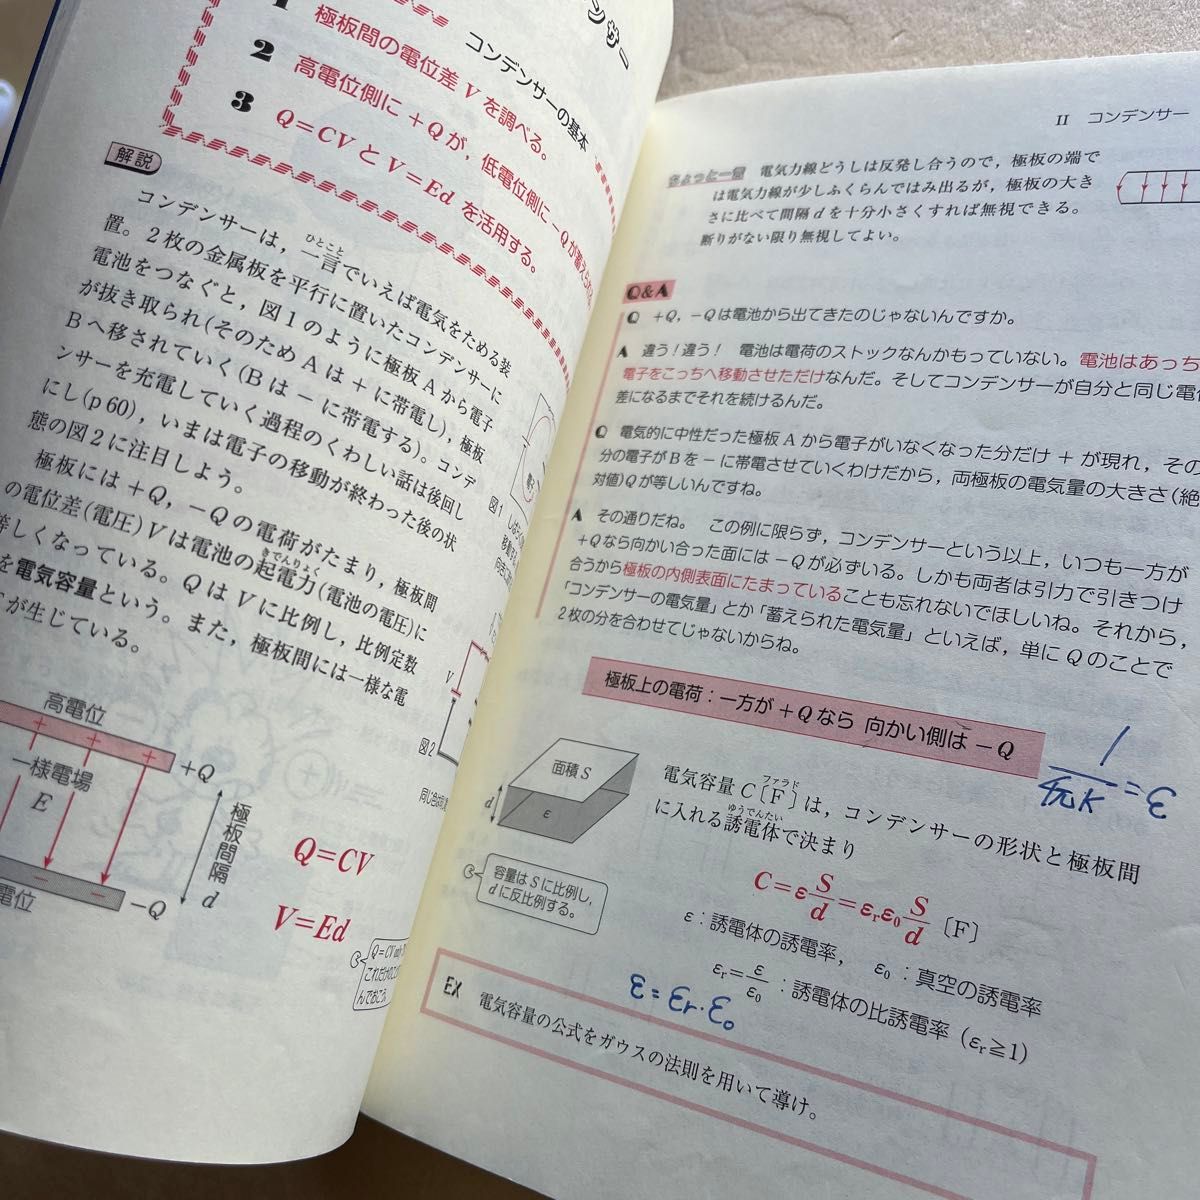 ンサー
コンデンサーの基本
1 極板間の電位差 V を調べる。
2 高電位側に +Q が, 低電位側に −Q が蓄えられ
3 Q=CV と V=Ed を活用する。
解説
コンデンサーは, 一言でいえば電気をためる装
ひとこと
置。2枚の金属板を平行に置いたコンデンサーに
電池をつなぐと, 図1のように極板 A から電子
が抜き取られ(そのため A は + に帯電し), 極板
B へ移されていく(B は − に帯電する)。コンデ
ンサーを充電していく過程のくわしい話は後回し
にし(p 60), いまは電子の移動が終わった後の状
態の図2に注目しよう。
極板には +Q, −Q の電荷がたまり, 極板間
の電位差(電圧) V は電池の起電力(電池の電圧)に
きでんりょく
等しくなっている。Q は V に比例し, 比例定数
を電気容量という。また, 極板間には一様な電
が生じている。
図1
図2
V
高電位
+Q
一様電場
E
極板間隔
d
電位
−Q
Q=CV
V=Ed
これだけの
んでおこう。
II コンデンサー
ちょっと一言 電気力線どうしは反発し合うので, 極板の端で
は電気力線が少しふくらんではみ出るが, 極板の大き
さに比べて間隔 d を十分小さくすれば無視できる。
断りがない限り無視してよい。
Q&A
Q +Q, −Q は電池から出てきたのじゃないんですか。
A 違う!違う! 電池は電荷のストックなんかもっていない。電池はあっち
電子をこっちへ移動させただけなんだ。そしてコンデンサーが自分と同じ電
差になるまでそれを続けるんだ。
Q 電気的に中性だった極板 A から電子がいなくなった分だけ + が現れ, その
分の電子が B を − に帯電させていくわけだから, 両極板の電気量の大きさ(絶
対値) Q が等しいんですね。
A その通りだね。 この例に限らず, コンデンサーという以上, いつも一方が
+Q なら向かい合った面には −Q が必ずいる。しかも両者は引力で引きつけ
合うから極板の内側表面にたまっていることも忘れないでほしいね。それから,
「コンデンサーの電気量」とか「蓄えられた電気量」といえば, 単に Q のことで
2 枚の分を合わせてじゃないからね。
極板上の電荷:一方が +Q なら 向かい側は −Q
1/4πk = ε
面積 S
d
ε
容量は S に比例し,
d に反比例する。
電気容量 C〔F〕は, コンデンサーの形状と極板間
ファラド
に入れる誘電体で決まり
ゆうでんたい
C=ε S/d =εrε0 S/d 〔F〕
ε:誘電体の誘電率, ε0:真空の誘電率
εr=ε/ε0:誘電体の比誘電率 (εr≧1)
ε=εr·ε0
EX 電気容量の公式をガウスの法則を用いて導け。